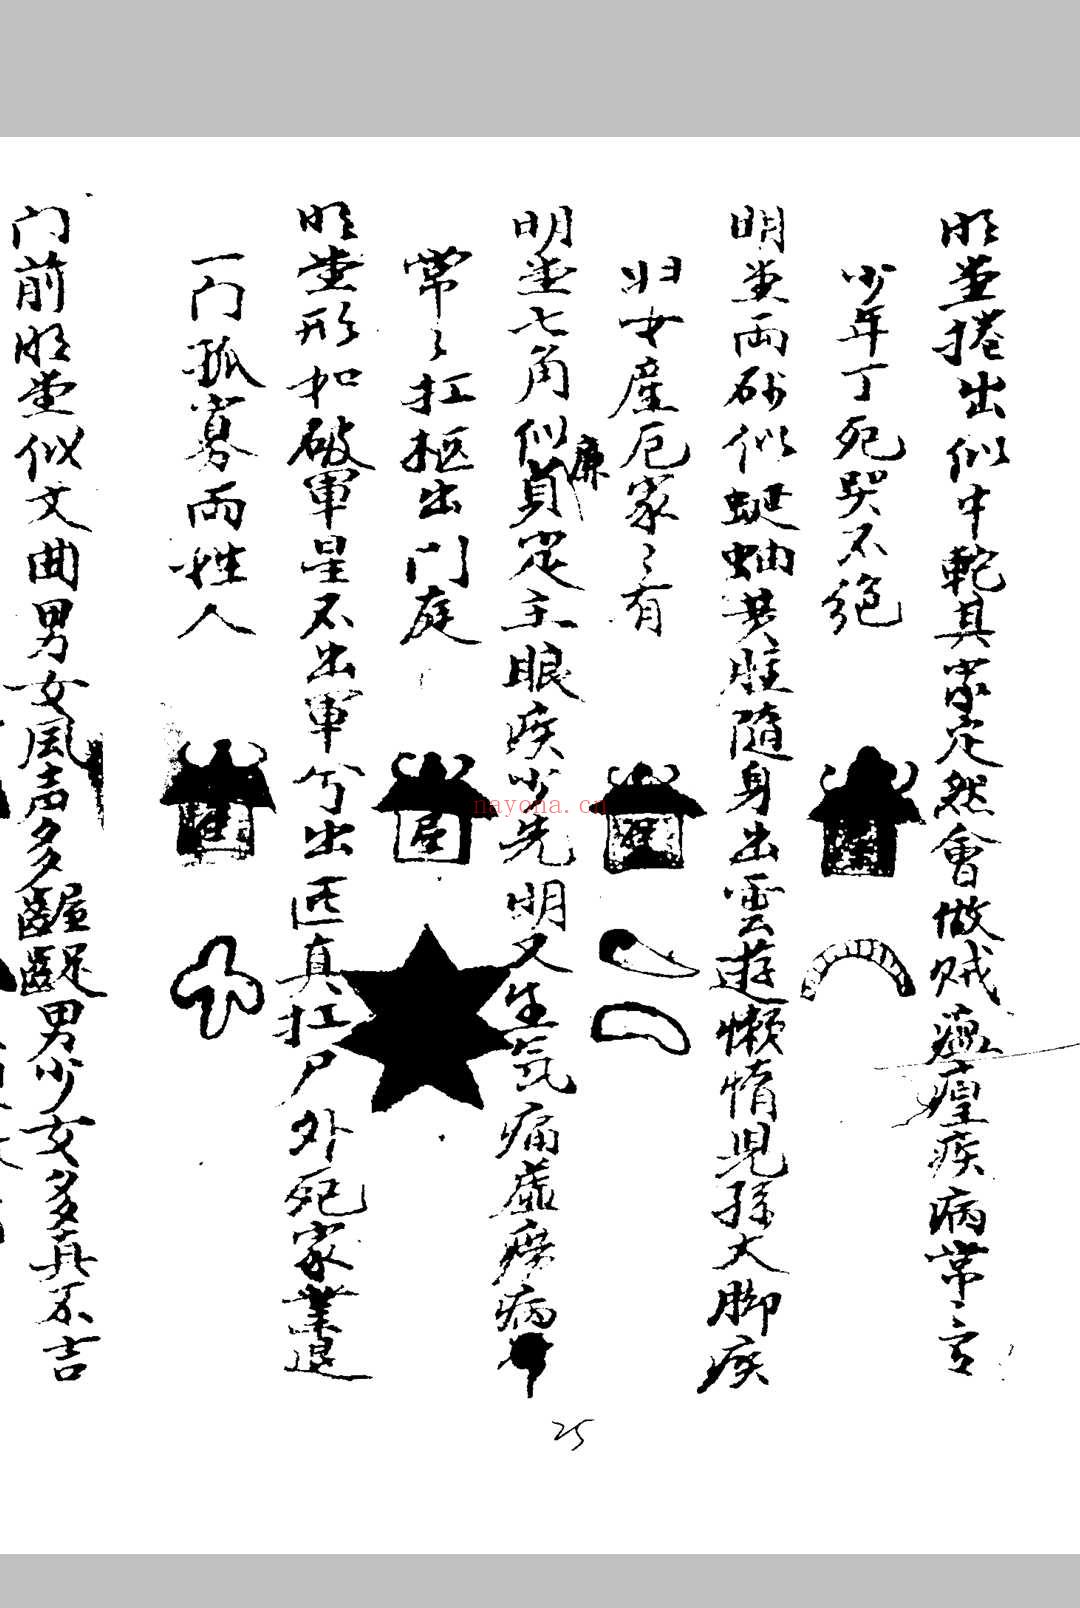 明堂捲出似牛軛其家定然會做賊瘟瘽疾病常〻言
少年丁死哭不絕
明堂兩砂似蜒蚰共脏隨身出雲遊懶惰児孫大脚疾
妇女產厄家〻有
明堂七角似廉貞定主眼疾少先明又生氣痛虛癆病
常〻扛柩出门庭
明堂形如破軍星不出軍兮出匠真扛尸外死家業退
一门孤寡兩姓人
门前明堂似文曲男女風声多齷齪男少女多真不吉
屋
25
nayona.cn